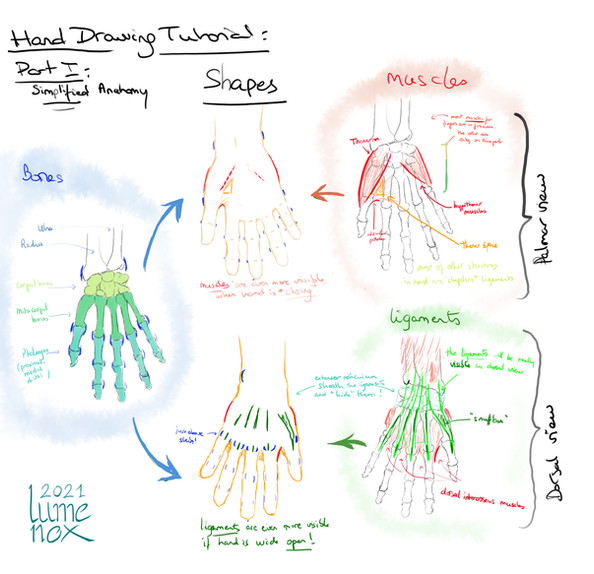 Hand Drawing Tutorial:
Part I:
Simplified Anatomy
Shapes
Muscles
Bones
Ulna
Radius
Carpal bones
Metacarpal
bones
Phalanges
(proximal,
medial
distal)
most muscles for
fingers are in forearm.
Thenar
hypothenar
muscles
thenar space
most of other structures
in hand are "chapters" ligaments
muscles are even more visible
when hand is closing
Palmar view
ligaments
extensor retinaculum
sheath the ligaments
and "hide" them!
the ligaments will be really
visible in dorsal view
"snuffbox"
just above
skin!
dorsal interosseus muscles
ligaments are even more visible
if hand is wide open!
Dorsal view
2021
lume
nox